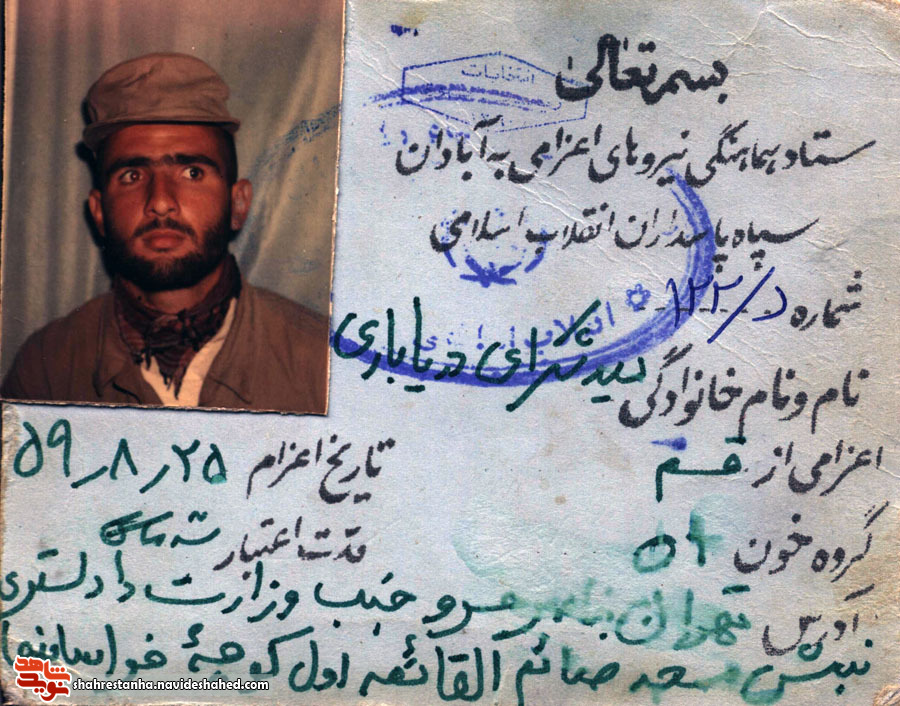 بسمه تعالی
انتخابات
ستاد هماهنگی نیروهای اعزامی به آبادان
سپاه پاسداران انقلاب اسلامی
شماره ۱۲۲/د
نام و نام خانوادگی سید شکرای دریاباری
اعزامی از قم
تاریخ اعزام ۵۹٫۸٫۲۵
گروه خون
مدت اعتبار
آدرس تهران خسرو جنب وزارت دادگستری
نبش مسجد صائم القائمه اول کوچه خراسانیها
نوید شاهد
shahrestanha.navideshahed.com